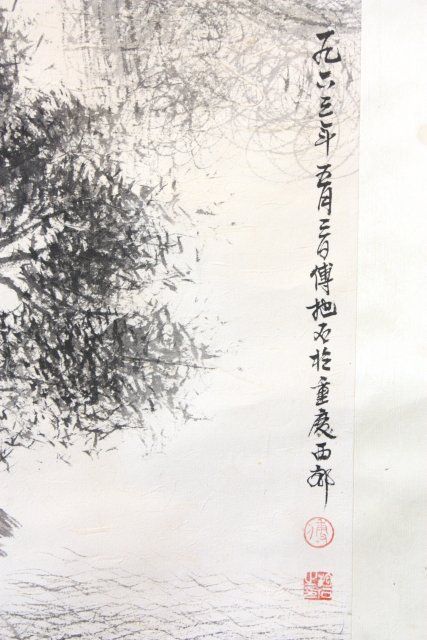 一九六三年五月三日傅抱石於重慶西郊
傅